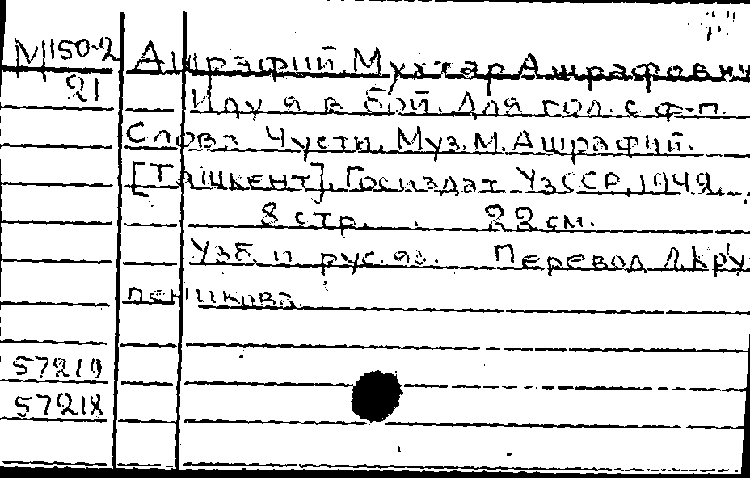 М150-2 Ашрафий, Мухтар Ашрафович
21 Иду я в бой. Для гол. с ф-п.
Слова Чусти. Муз. М. Ашрафий.
[Ташкент], Госиздат УзССР, 1949.
8 стр. 22 см.
Узб. и рус. яз. Перевод Л. Кру
пеникова
57219
57218